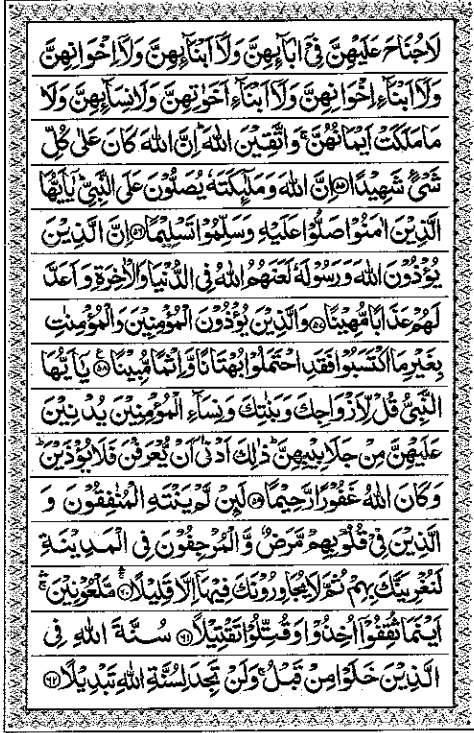 لَاجُنَاحَ عَلَيْهِنَّ فِيْٓ اٰبَآئِهِنَّ وَلَآ اَبْنَآئِهِنَّ وَلَآ اِخْوَانِهِنَّ
وَلَآ اَبْنَآءِ اِخْوَانِهِنَّ وَلَآ اَبْنَآءِ اَخَوٰتِهِنَّ وَلَا نِسَآئِهِنَّ وَلَا
مَا مَلَكَتْ اَيْمَانُهُنَّ ۚ وَاتَّقِيْنَ اللّٰهَ ؕ اِنَّ اللّٰهَ كَانَ عَلٰى كُلِّ
شَيْءٍ شَهِيْدًا ﴿۵۵﴾ اِنَّ اللّٰهَ وَمَلٰٓئِكَتَهٗ يُصَلُّوْنَ عَلَى النَّبِيِّ ؕ يٰٓاَيُّهَا
الَّذِيْنَ اٰمَنُوْا صَلُّوْا عَلَيْهِ وَسَلِّمُوْا تَسْلِيْمًا ﴿۵۶﴾ اِنَّ الَّذِيْنَ
يُؤْذُوْنَ اللّٰهَ وَرَسُوْلَهٗ لَعَنَهُمُ اللّٰهُ فِي الدُّنْيَا وَالْاٰخِرَةِ وَاَعَدَّ
لَهُمْ عَذَابًا مُّهِيْنًا ﴿۵۷﴾ وَالَّذِيْنَ يُؤْذُوْنَ الْمُؤْمِنِيْنَ وَالْمُؤْمِنٰتِ
بِغَيْرِ مَا اكْتَسَبُوْا فَقَدِ احْتَمَلُوْا بُهْتَانًا وَّاِثْمًا مُّبِيْنًا ﴿۵۸﴾ يٰٓاَيُّهَا
النَّبِيُّ قُلْ لِّاَزْوَاجِكَ وَبَنٰتِكَ وَنِسَآءِ الْمُؤْمِنِيْنَ يُدْنِيْنَ
عَلَيْهِنَّ مِنْ جَلَابِيْبِهِنَّ ؕ ذٰلِكَ اَدْنٰٓى اَنْ يُّعْرَفْنَ فَلَا يُؤْذَيْنَ ؕ
وَكَانَ اللّٰهُ غَفُوْرًا رَّحِيْمًا ﴿۵۹﴾ لَئِنْ لَّمْ يَنْتَهِ الْمُنٰفِقُوْنَ وَ
الَّذِيْنَ فِيْ قُلُوْبِهِمْ مَّرَضٌ وَّالْمُرْجِفُوْنَ فِي الْمَدِيْنَةِ
لَنُغْرِيَنَّكَ بِهِمْ ثُمَّ لَا يُجَاوِرُوْنَكَ فِيْهَآ اِلَّا قَلِيْلًا ﴿۶۰﴾ مَّلْعُوْنِيْنَ ۚ
اَيْنَمَا ثُقِفُوْٓا اُخِذُوْا وَقُتِّلُوْا تَقْتِيْلًا ﴿۶۱﴾ سُنَّةَ اللّٰهِ فِي
الَّذِيْنَ خَلَوْا مِنْ قَبْلُ ۚ وَلَنْ تَجِدَ لِسُنَّةِ اللّٰهِ تَبْدِيْلًا ﴿۶۲﴾